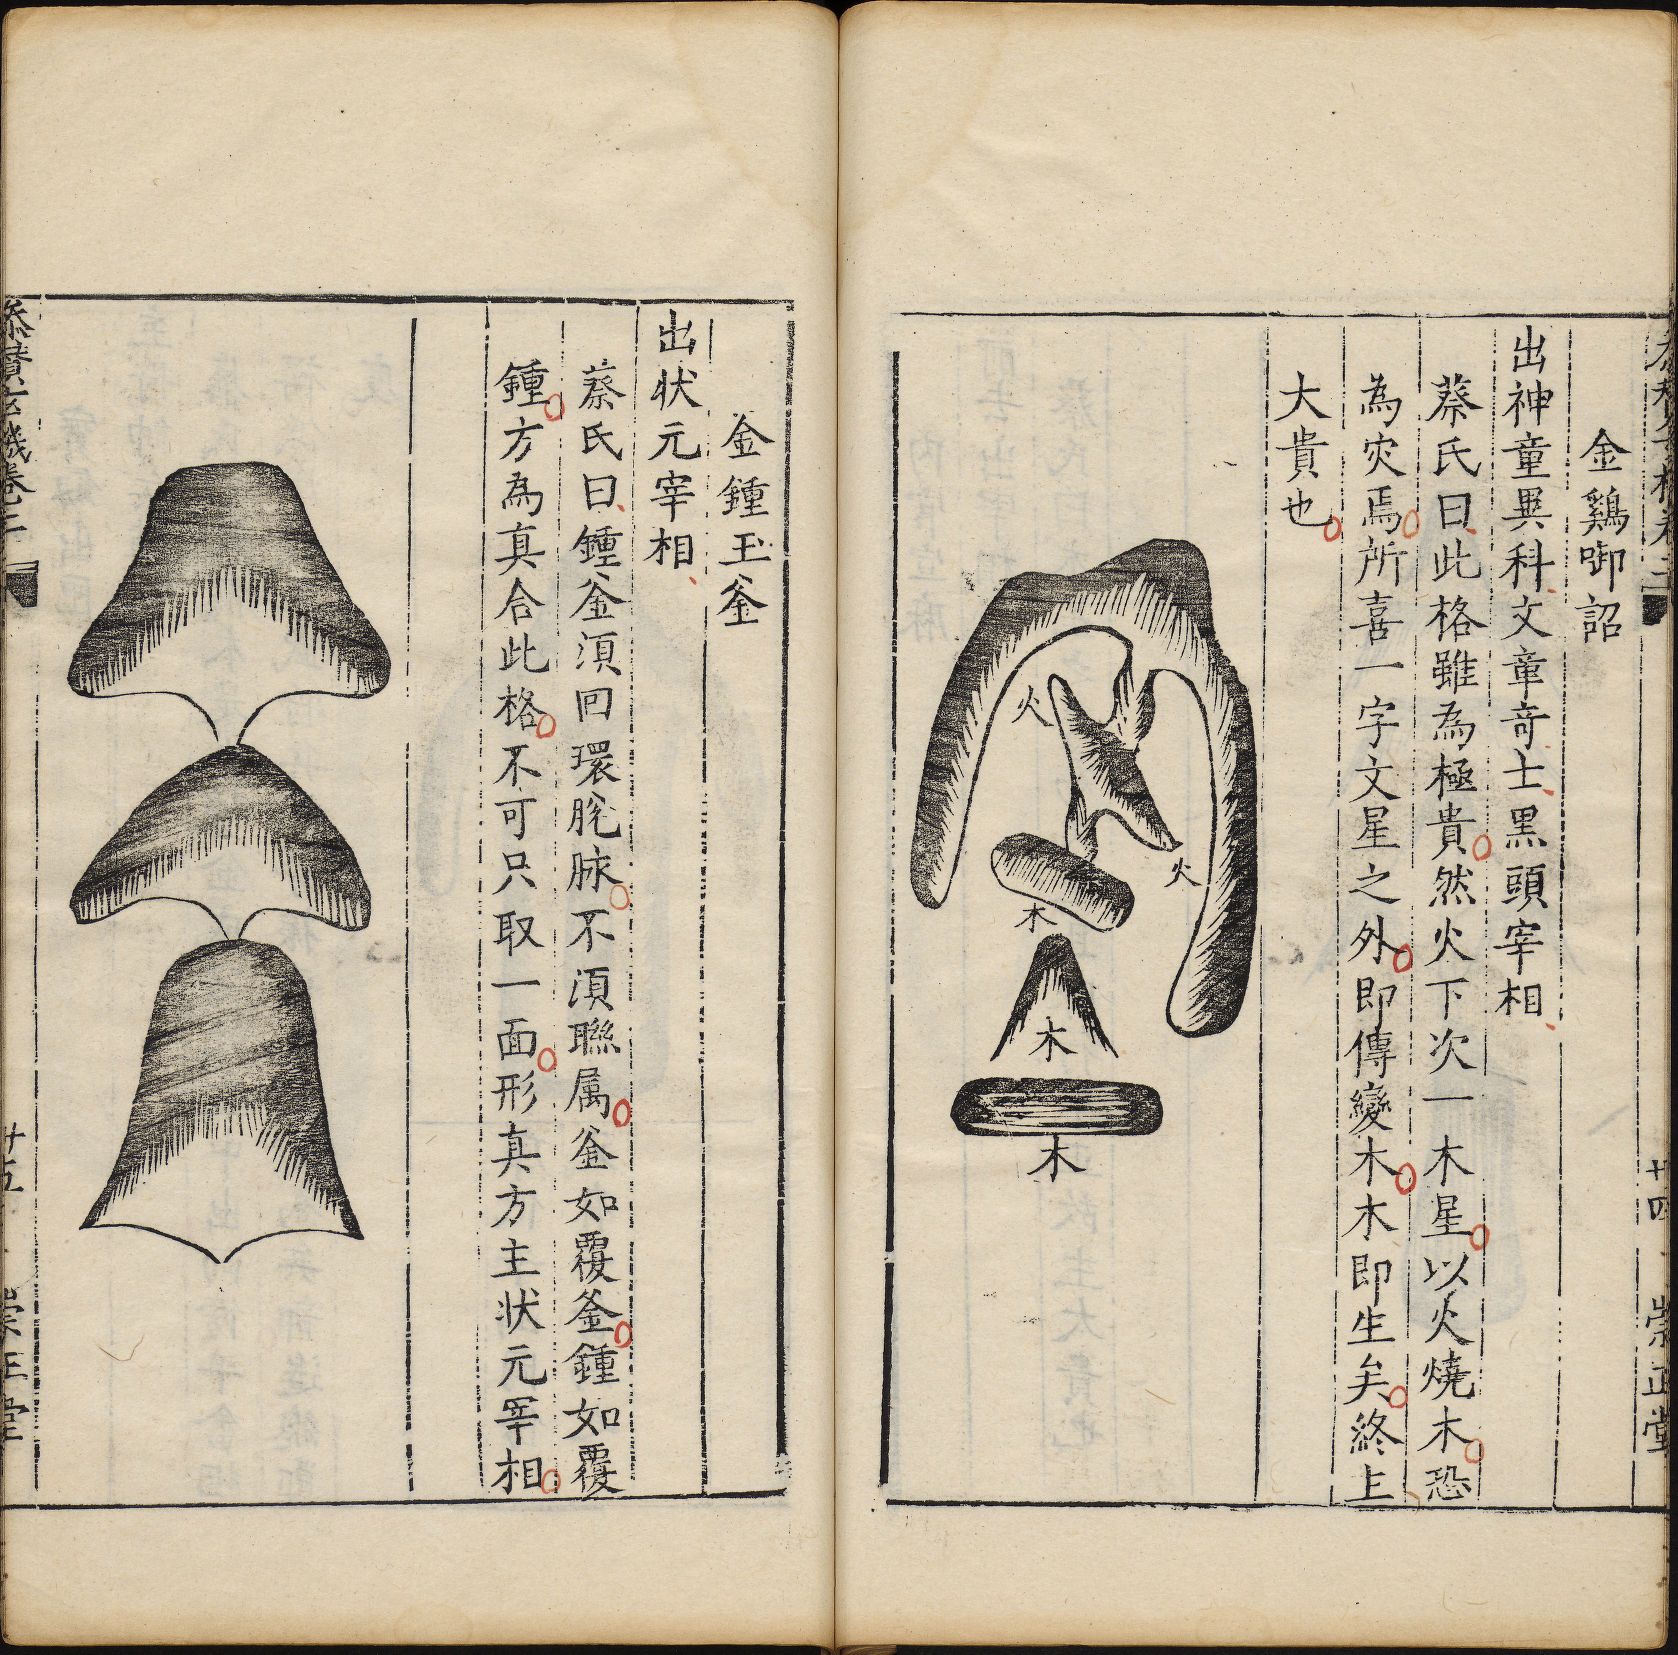 金鷄啣詔
出神童異科文章竒士黑頭宰相
蔡氏曰此格雖為極貴然火下次一木星以火燒木恐
為灾焉所喜一字文星之外即傳變木木即生矣終上
大貴也
火
火
木
木
木
廿四
崇正堂
金鍾玉釜
出状元宰相
蔡氏曰鍾釜湏回環脫脉不湏聯属釜如覆釜鍾如覆
鍾方為真合此格不可只取一面形真方主状元宰相
廿五
崇正堂